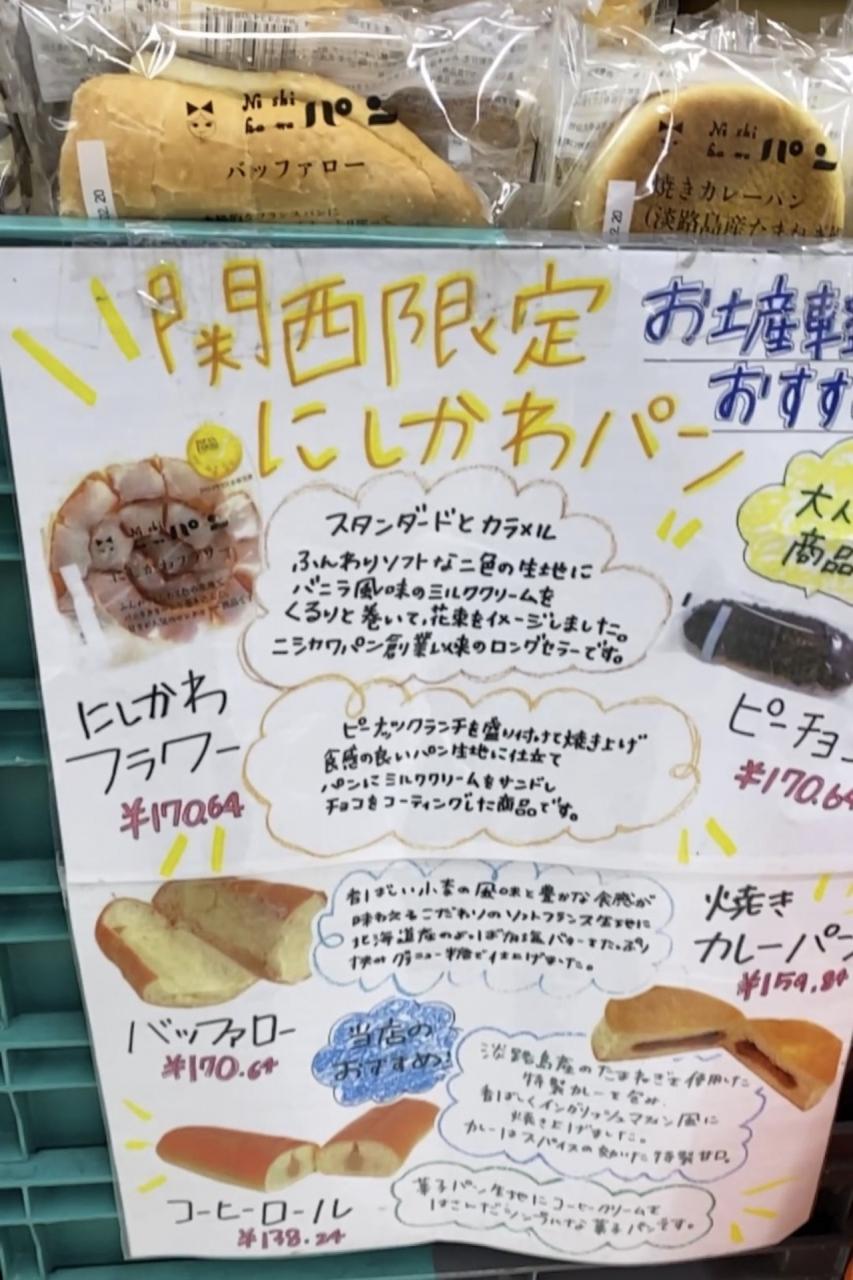 Ni shi
ka wa パン
バッファロー
Ni shi
ka wa パン
焼きカレーパン
(淡路島産たまねぎ
関西限定
にしかわパン
お土産
おすす
大人
商品
スタンダードとカラメル
ふんわりソフトな二色の生地に
バニラ風味のミルククリームを
くるりと巻いて、花束をイメージしました。
ニシカワパン創業以来のロングセラーです。
にしかわ
フラワー
¥170.64
ピーナッツクランチを盛り付けて焼き上げ
食感の良いパン生地に仕立て
パンにミルククリームをサンドし
チョコをコーティングした商品です。
ピーチョ
¥170.64
香ばしい小麦の風味と豊かな食感が
味わえるこだわりのソフトフランス生地に
北海道産のよつば加塩バターをたっぷり
挟みグラニュー糖で仕上げました。
バッファロー
¥170.64
焼き
カレーパン
¥159.84
当店の
おすすめ!
淡路島産のたまねぎを使用した
特製カレーを包み、
香ばしくイングリッシュマフィン風に
焼き上げました。
カレーはスパイスの効いた特製甘口。
コーヒーロール
¥138.24
菓子パン生地にコーヒークリームを
はさんだシンプルな菓子パンです。